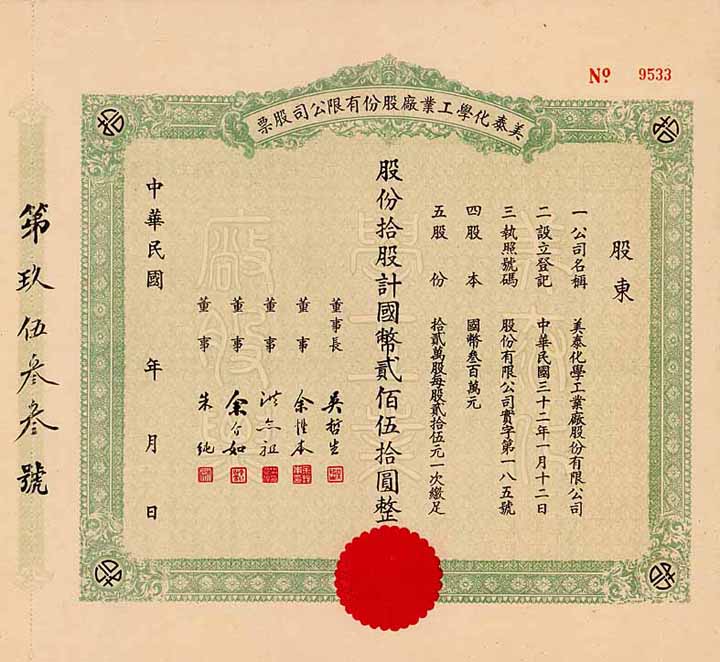 Nº 9533
美泰化學工業廠股份有限公司股票
股東
一公司名稱 美泰化學工業廠股份有限公司
二設立登記 中華民國三十二年一月十二日
三執照號碼 股份有限公司實字第一八五號
四股本 國幣叁百萬元
五股份 拾貳萬股每股貳拾伍元一次繳足
股份拾股計國幣貳佰伍拾圓整
董事長 吳哲生
董事 余性本
董事 洪念祖
董事 余介如
董事 朱純
中華民國 年 月 日
第玖伍叁叁號